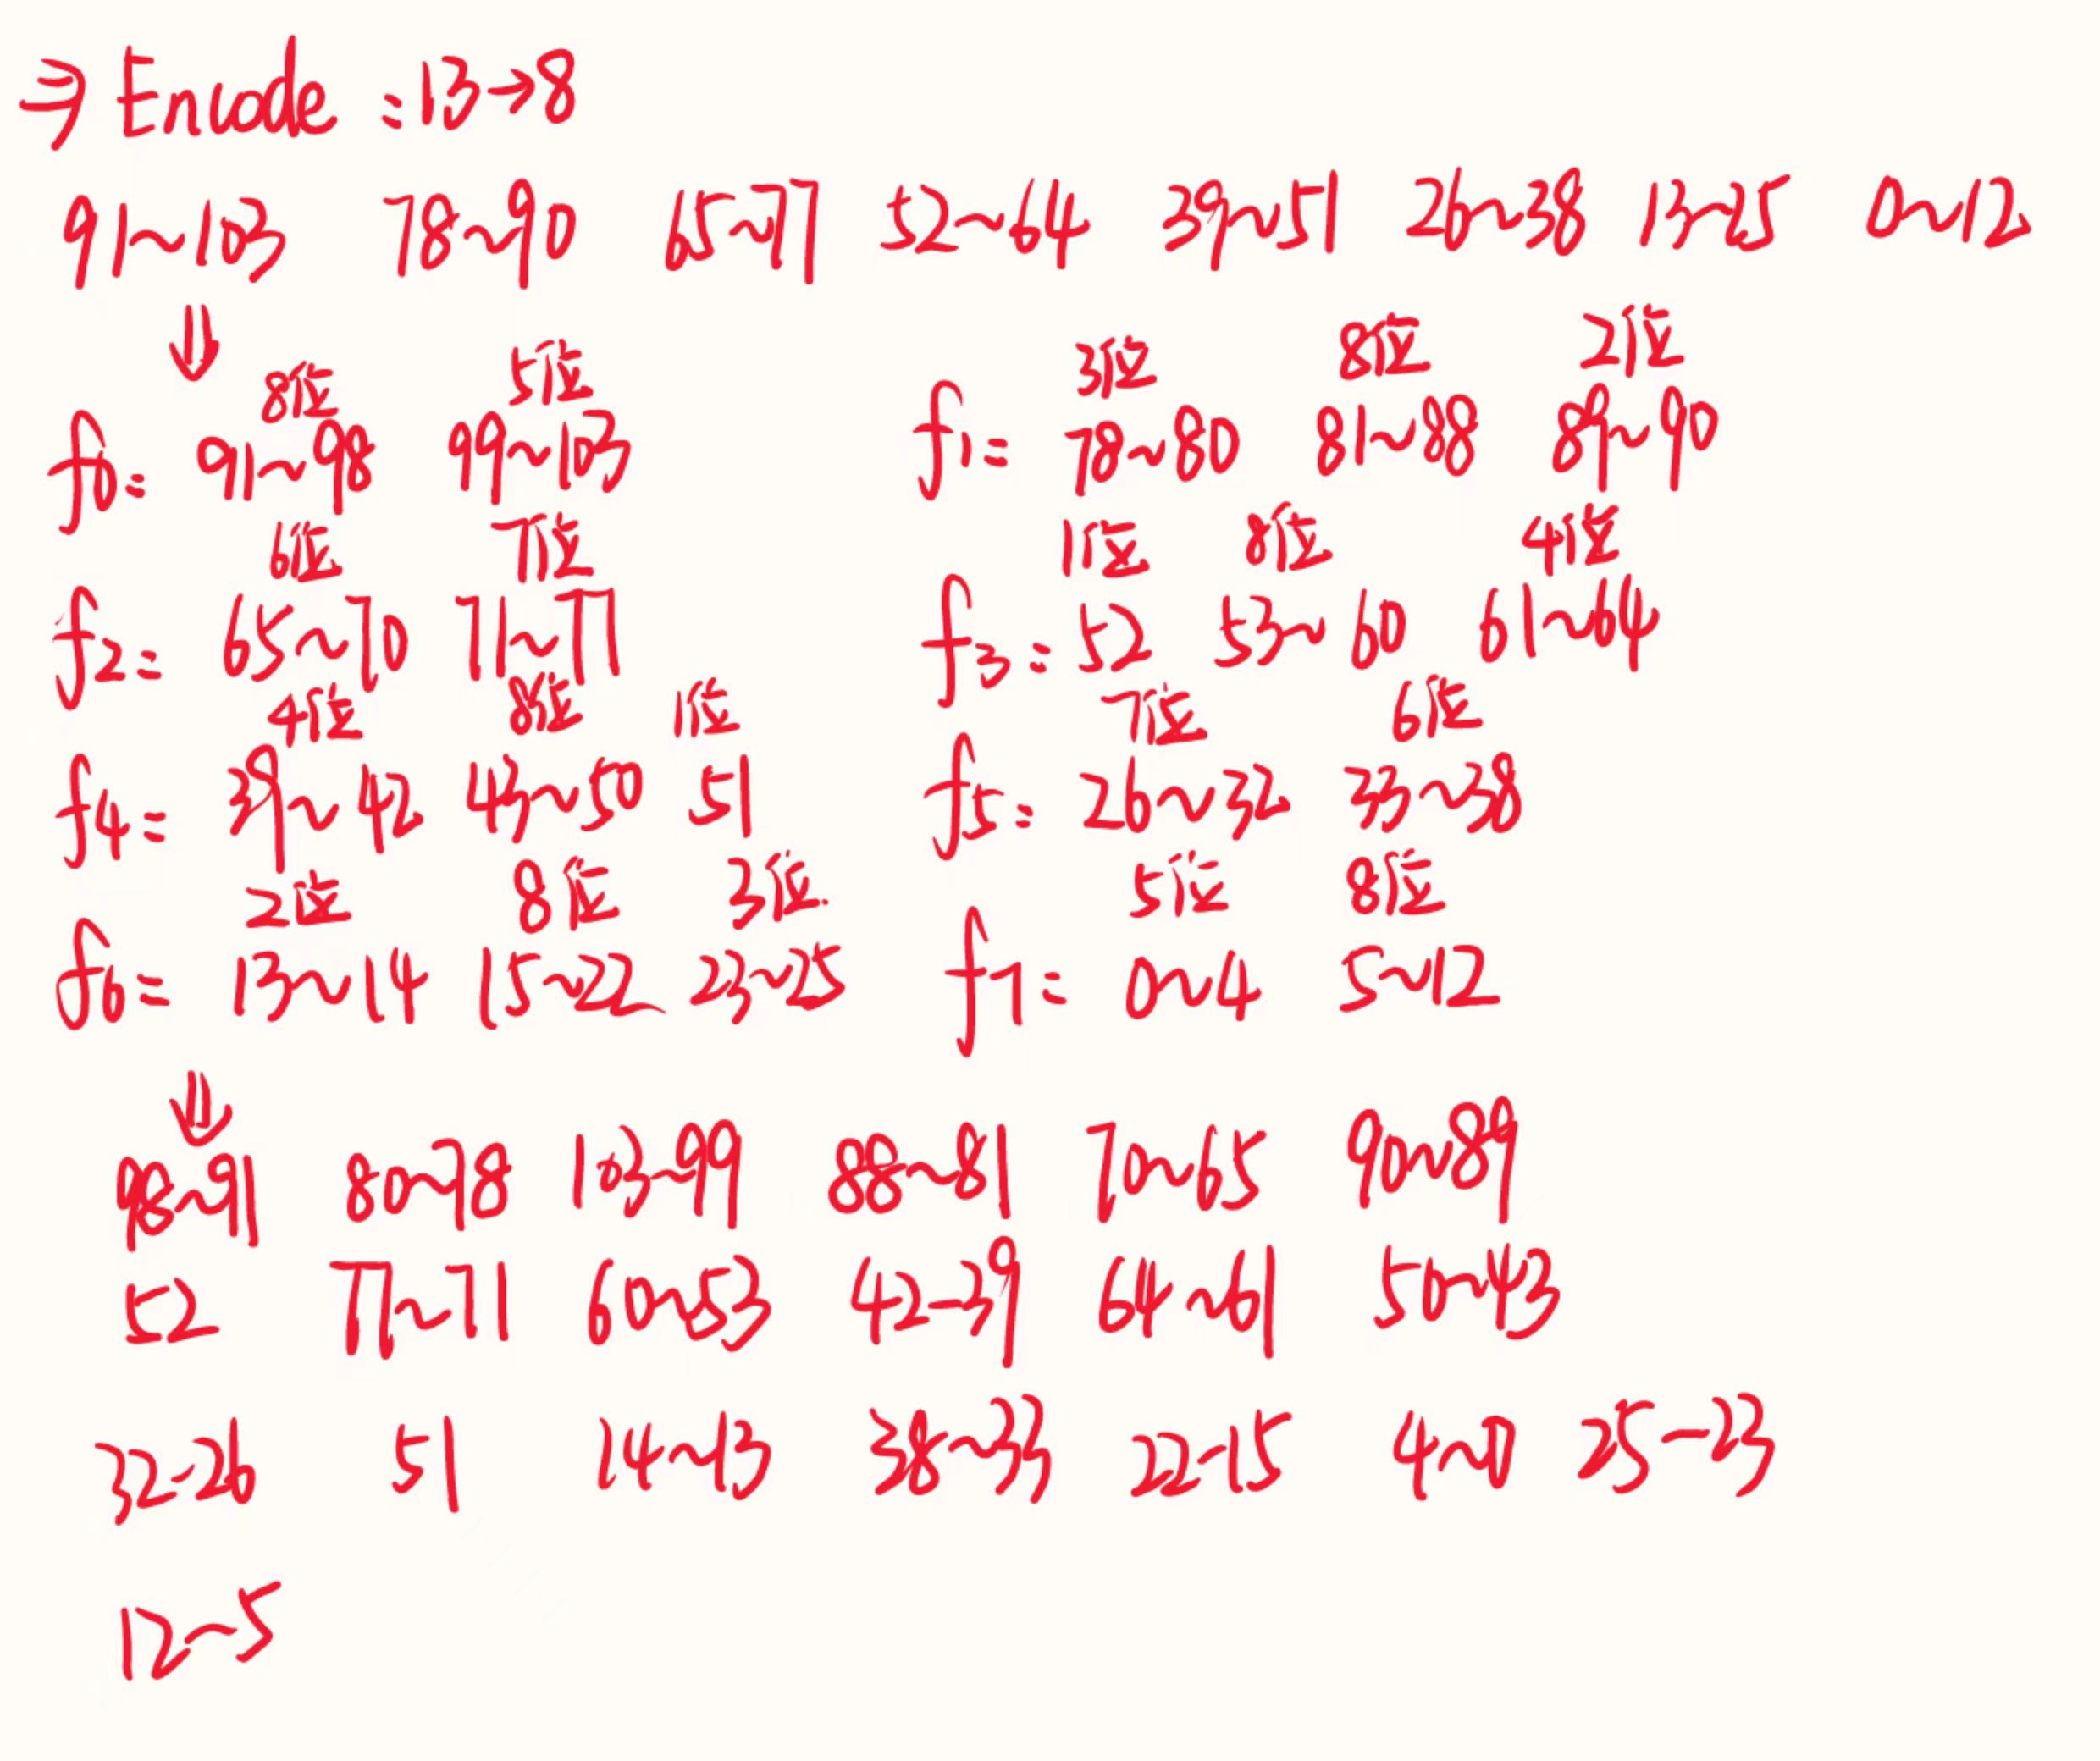 ⇒ Encode : 13→8
91~103 78~90 65~77 52~64 39~51 26~38 13~25 0~12
⇓
8位 5位 3位 8位 2位
f0= 91~98 99~103 f1= 78~80 81~88 89~90
6位 7位 1位 8位 4位
f2= 65~70 71~77 f3= 52 53~60 61~64
4位 8位 1位 7位 6位
f4= 39~42 43~50 51 f5= 26~32 33~38
2位 8位 3位. 5位 8位
f6= 13~14 15~22 23~25 f7= 0~4 5~12
⇓
98~91 80~78 103~99 88~81 70~65 90~89
52 77~71 60~53 42-39 64~61 50~43
32-26 51 14~13 38~33 22-15 4~0 25-23
12~5